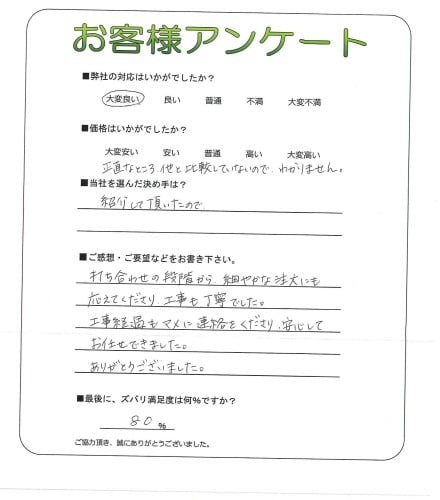 お客様アンケート
■弊社の対応はいかがでしたか?
大変良い 良い 普通 不満 大変不満
■価格はいかがでしたか?
大変安い 安い 普通 高い 大変高い
正直なところ、他と比較していないので、わかりません。
■当社を選んだ決め手は?
紹介して頂いたので
■ご感想・ご要望などをお書き下さい。
打ち合わせの段階から、細やかな注文にも
応えてくださり、工事も丁寧でした。
工事経過もマメに連絡をくださり、安心して
お任せできました。
ありがとうございました。
■最後に、ズバリ満足度は何%ですか?
80 %
ご協力頂き、誠にありがとうございました。